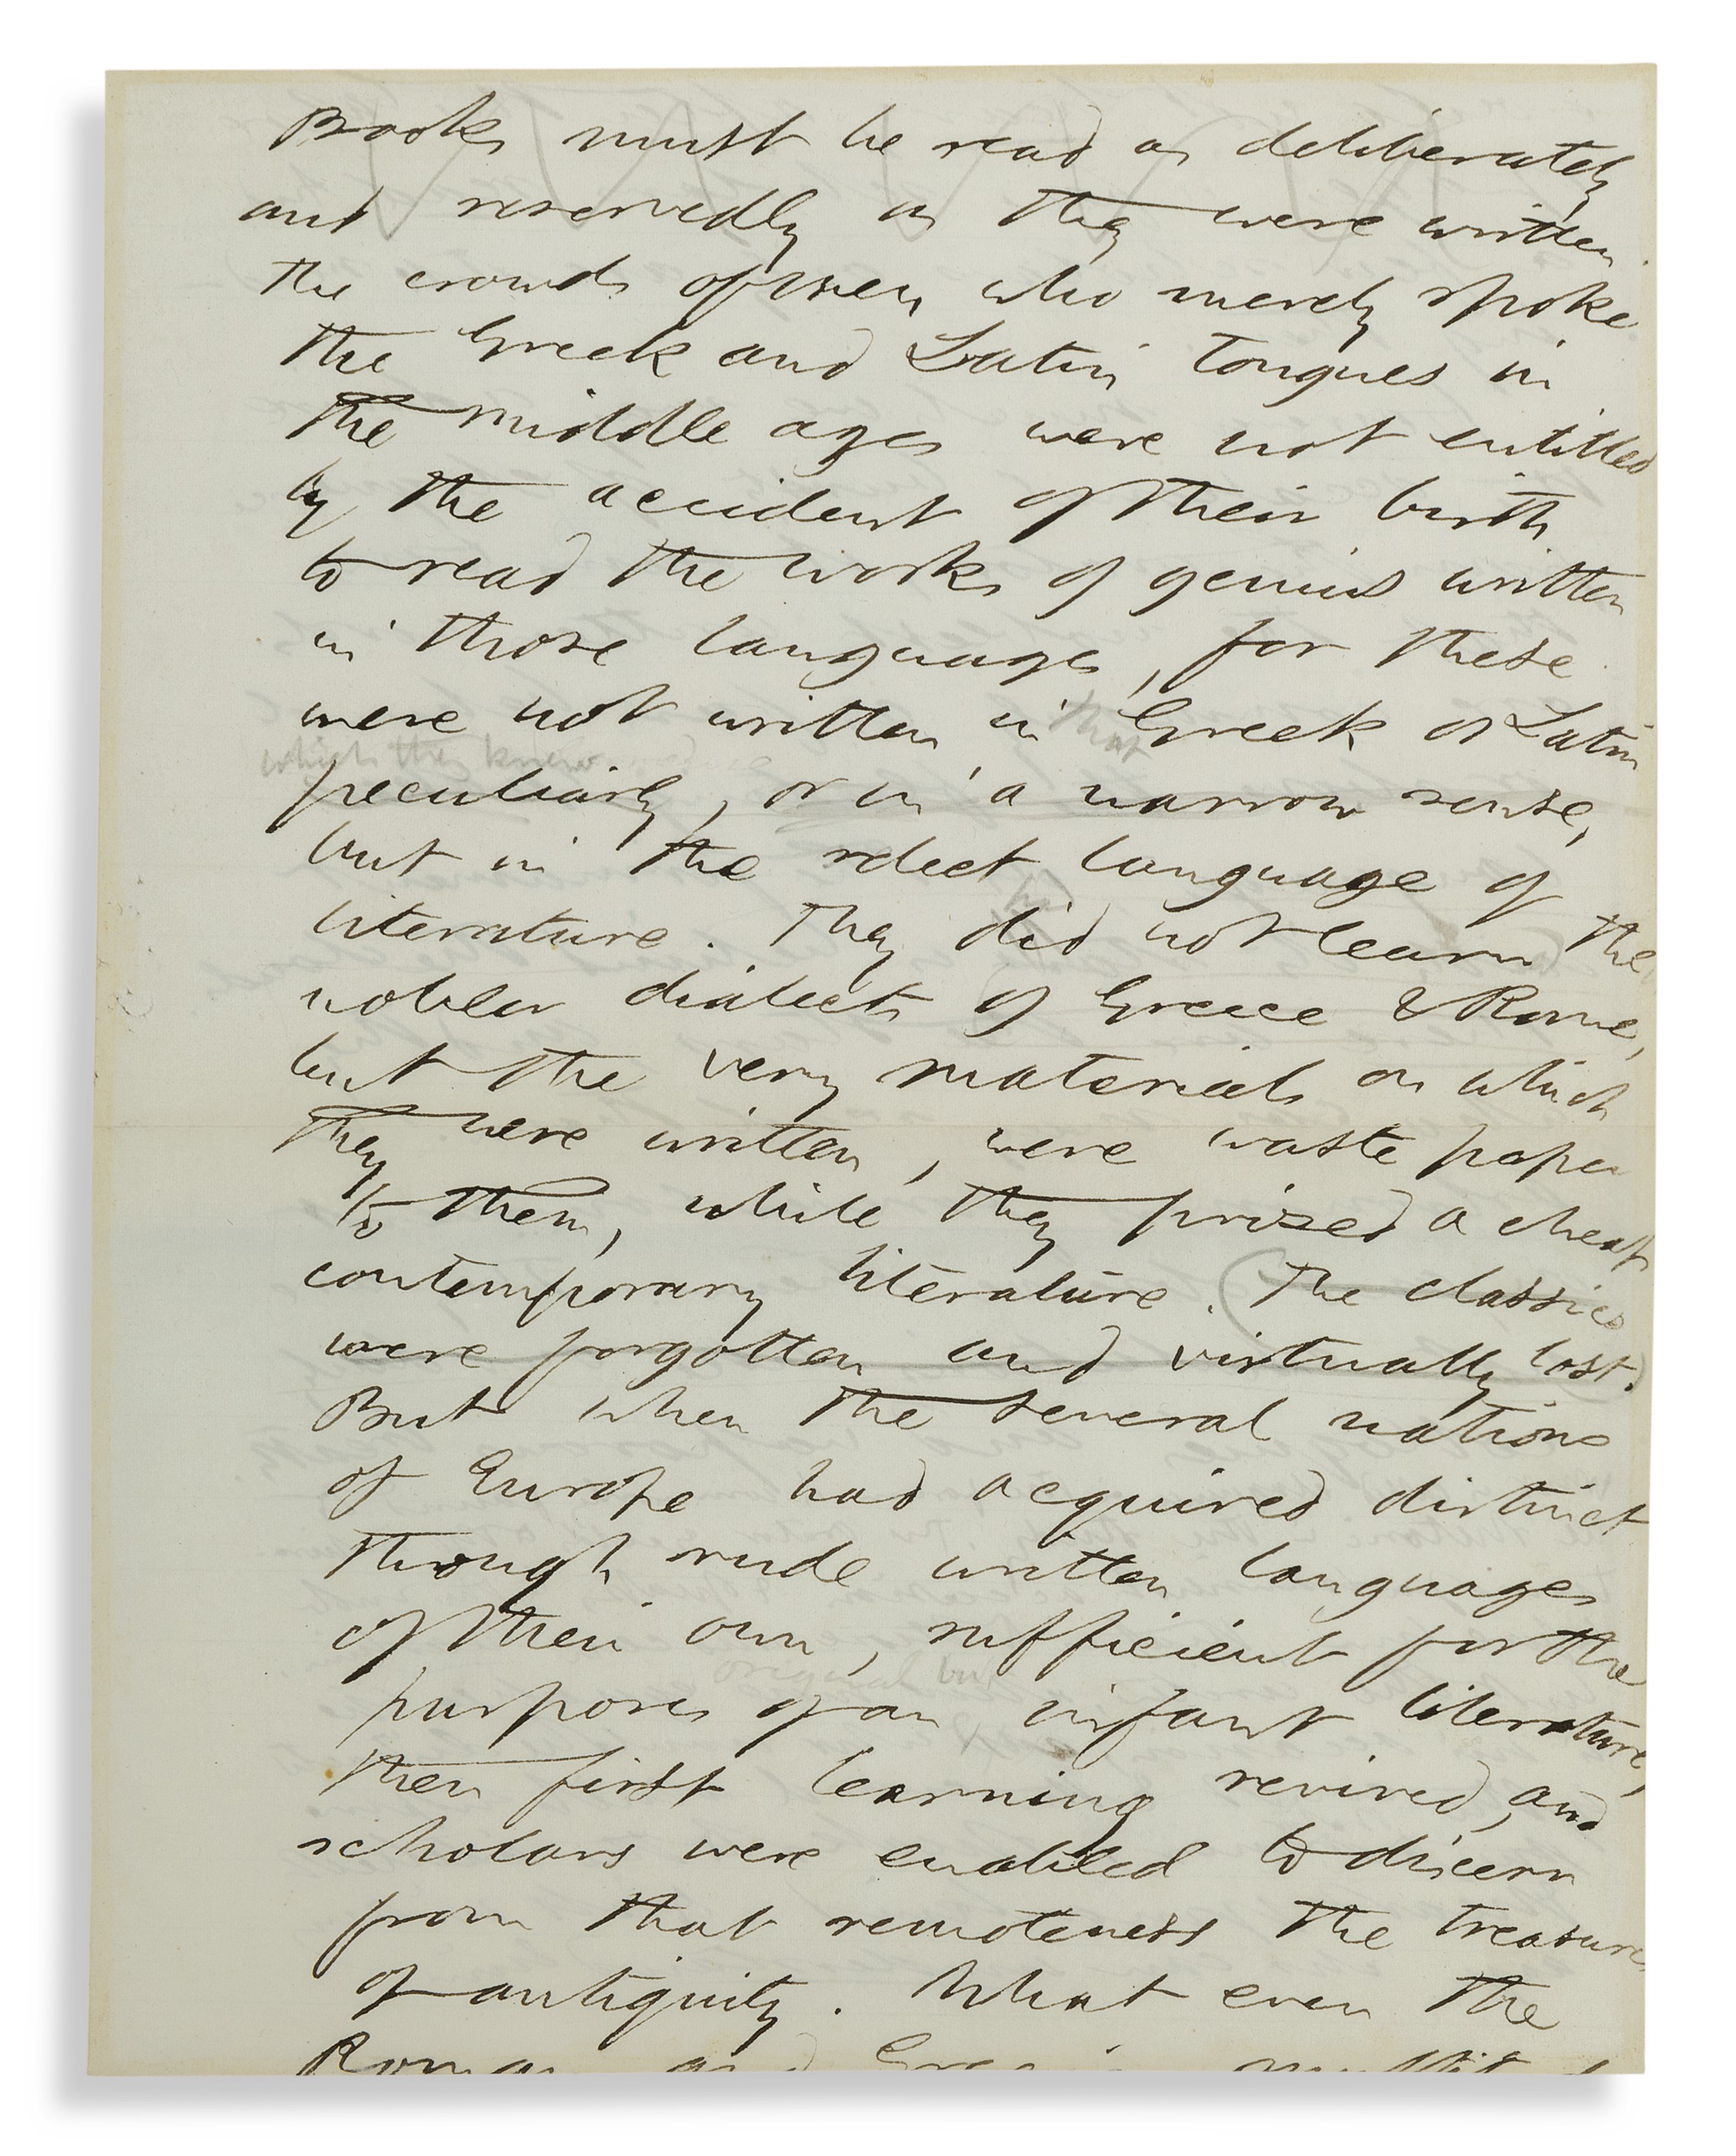 Books must be read as deliberately
and reservedly as they were written.
The crowds of men who merely spoke
the Greek and Latin tongues in
the middle ages were not entitled
by the accident of their birth
to read the works of genius written
in those languages, for these
were not written in that Greek or Latin
which they knew
peculiarly, or in a narrow sense,
but in the select language of
literature. They did not learn the
nobler dialects of Greece & Rome,
but the very materials on which
they were written, were waste paper
to them, while they prized a cheap
contemporary literature. (The classics
were forgotten and virtually lost.)
But when the several nations
of Europe had acquired distinct
though rude written languages
of their own, sufficient for the
original but
purposes of an infant literature,
then first learning revived, and
scholars were enabled to discern
from that remoteness the treasures
of antiquity. What even the
Roman and Grecian multitude